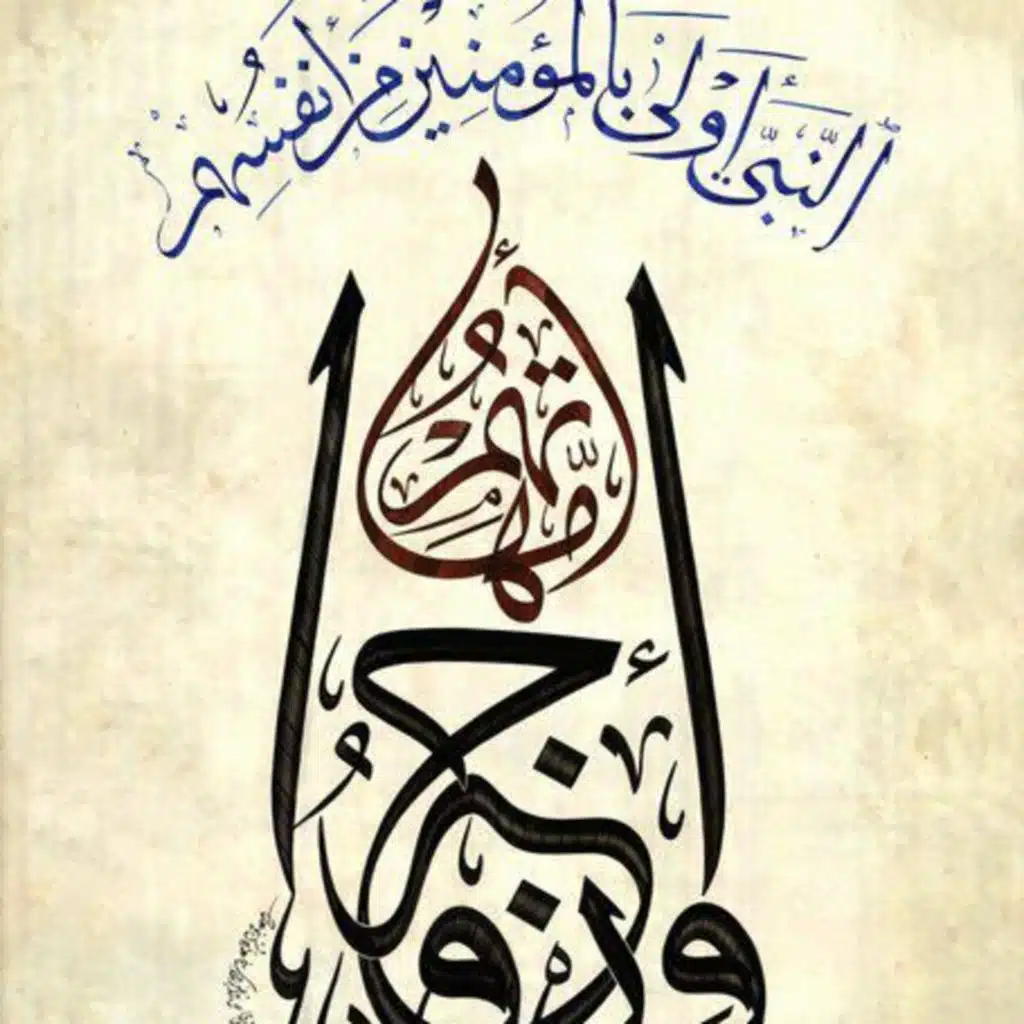 النَّبِيُّ أَوْلَىٰ بِالْمُؤْمِنِينَ مِنْ أَنفُسِهِمْ
وَأَزْوَاجُهُ
أُمَّهَاتُهُمْ